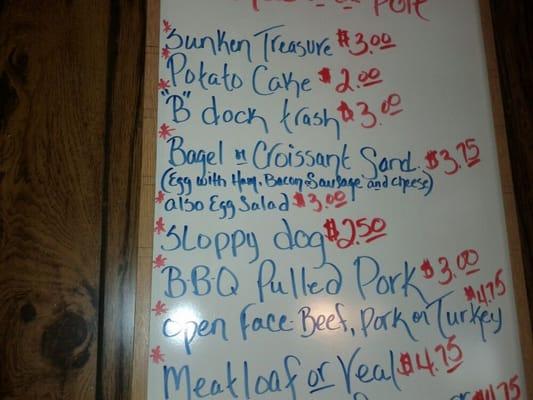 or Pole
* Sunken Treasure $3.00
* Potato Cake $2.00
* "B" dock trash $3.00
* Bagel or Croissant Sand. $3.75
(Egg with Ham, Bacon, Sausage and cheese)
* also Egg Salad $3.00
* Sloppy dog $2.50
* B.B.Q Pulled Pork $3.00
* open Face: Beef, Pork or Turkey $4.75
* Meatloaf or Veal $4.75
$4.75